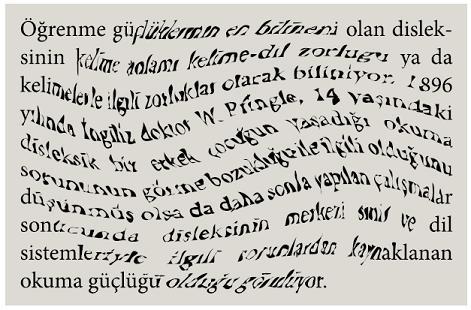 Öğrenme güçlüklerinin en bilineni olan dislek-
sinin kelime anlamı kelime-dil zorluğu ya da
kelimelerle ilgili zorluklar olarak biliniyor. 1896
yılında İngiliz doktor W. Pringle, 14 yaşındaki
disleksik bir erkek çocuğun yaşadığı okuma
sorununun görme bozukluğu ile ilgili olduğunu
düşünmüş olsa da daha sonla yapılan çalışmalar
sonucunda disleksinin merkezi sinir ve dil
sistemleriyle ilgili sorunlardan kaynaklanan
okuma güçlüğü olduğu görülüyor.